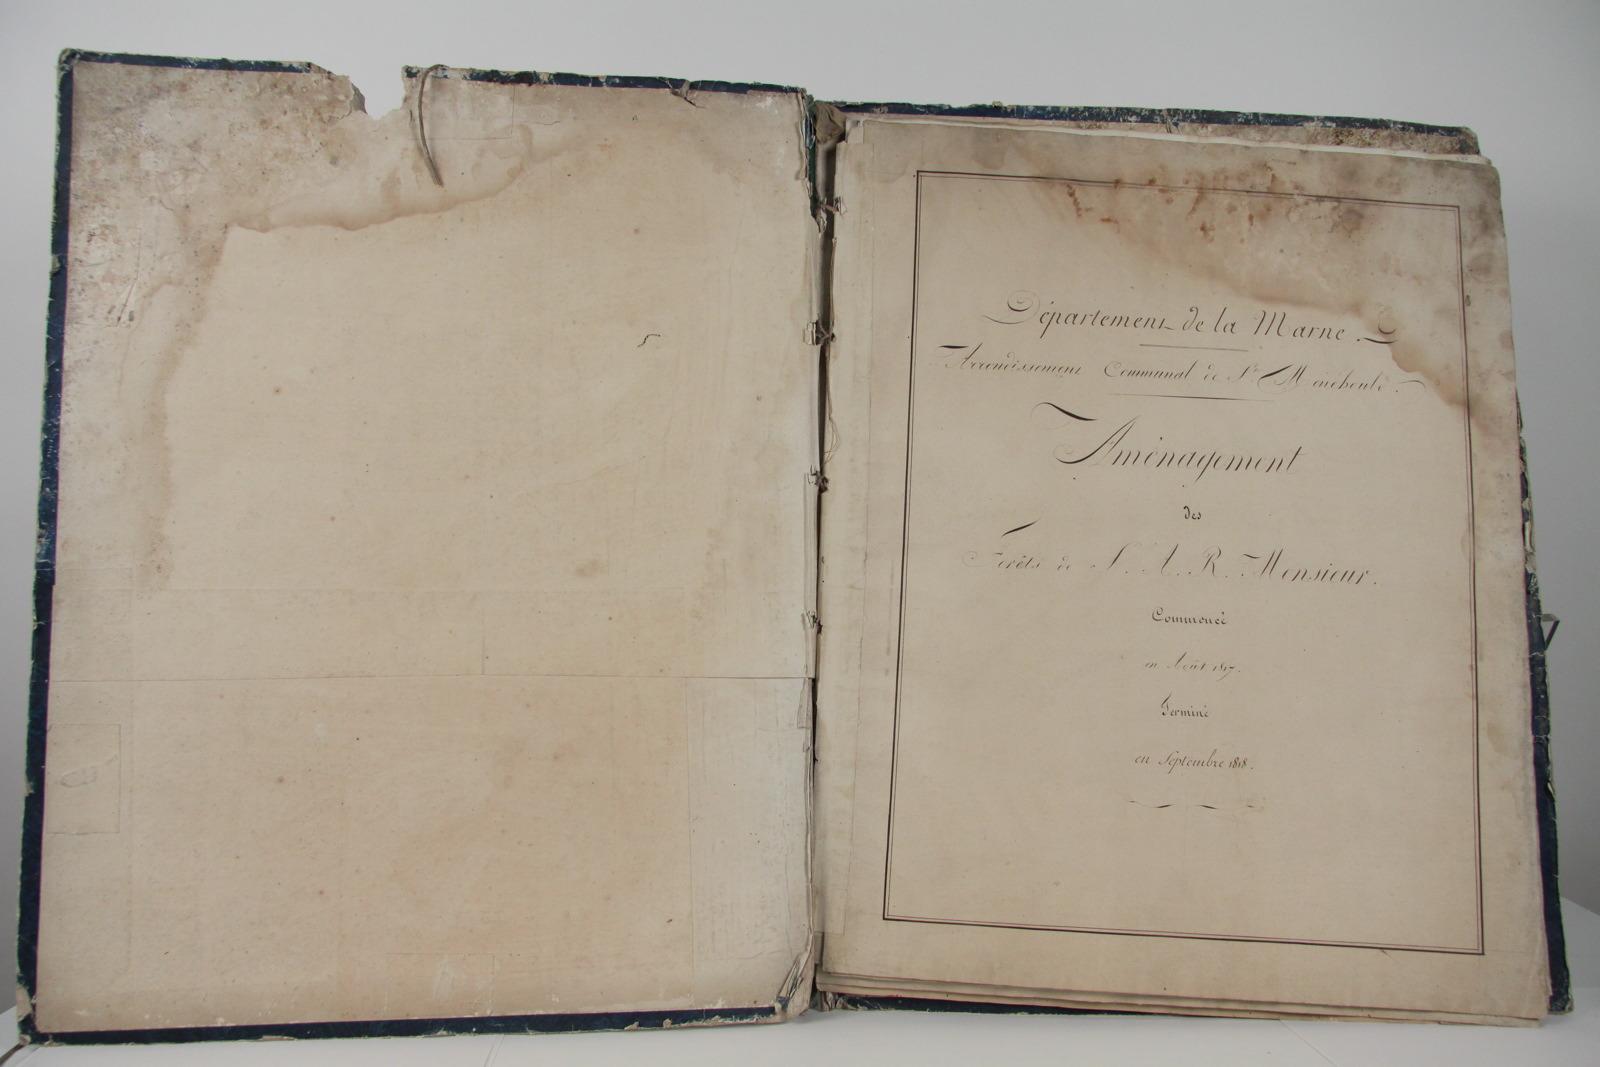 Département de la Marne.
Arrondissement Communal de Ste. Ménéhould.
Aménagement
des
Forêts de S. A. R. Monsieur.
Commencé
en Août 1817.
Terminé
en Septembre 1818.